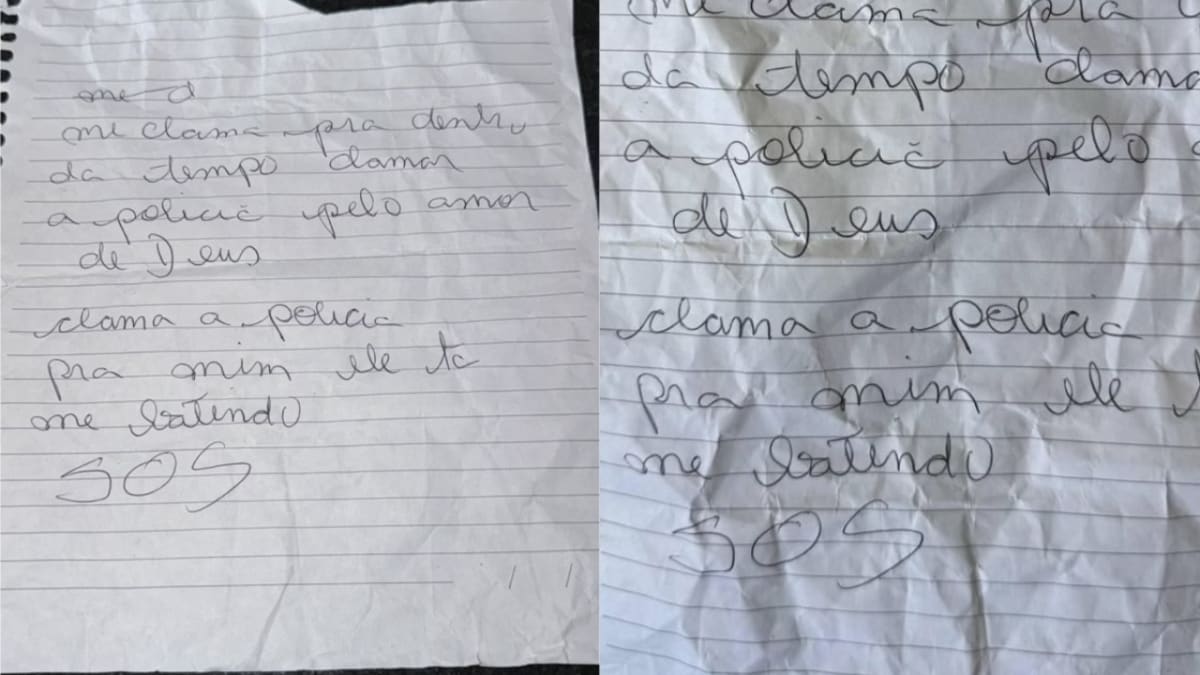 me d
me clama pra dentro
da tempo clamar
a policia pelo amor
de Deus
clama a policia
pra mim ele ta
me batendo
SOS
/ /
me clama pra
da tempo clama
a policia pelo
de Deus
clama a policia
pra mim ele
me batendo
SOS